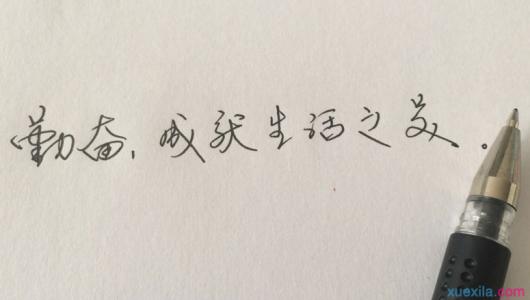 勤奋,成就生活之美.
xuexila.com